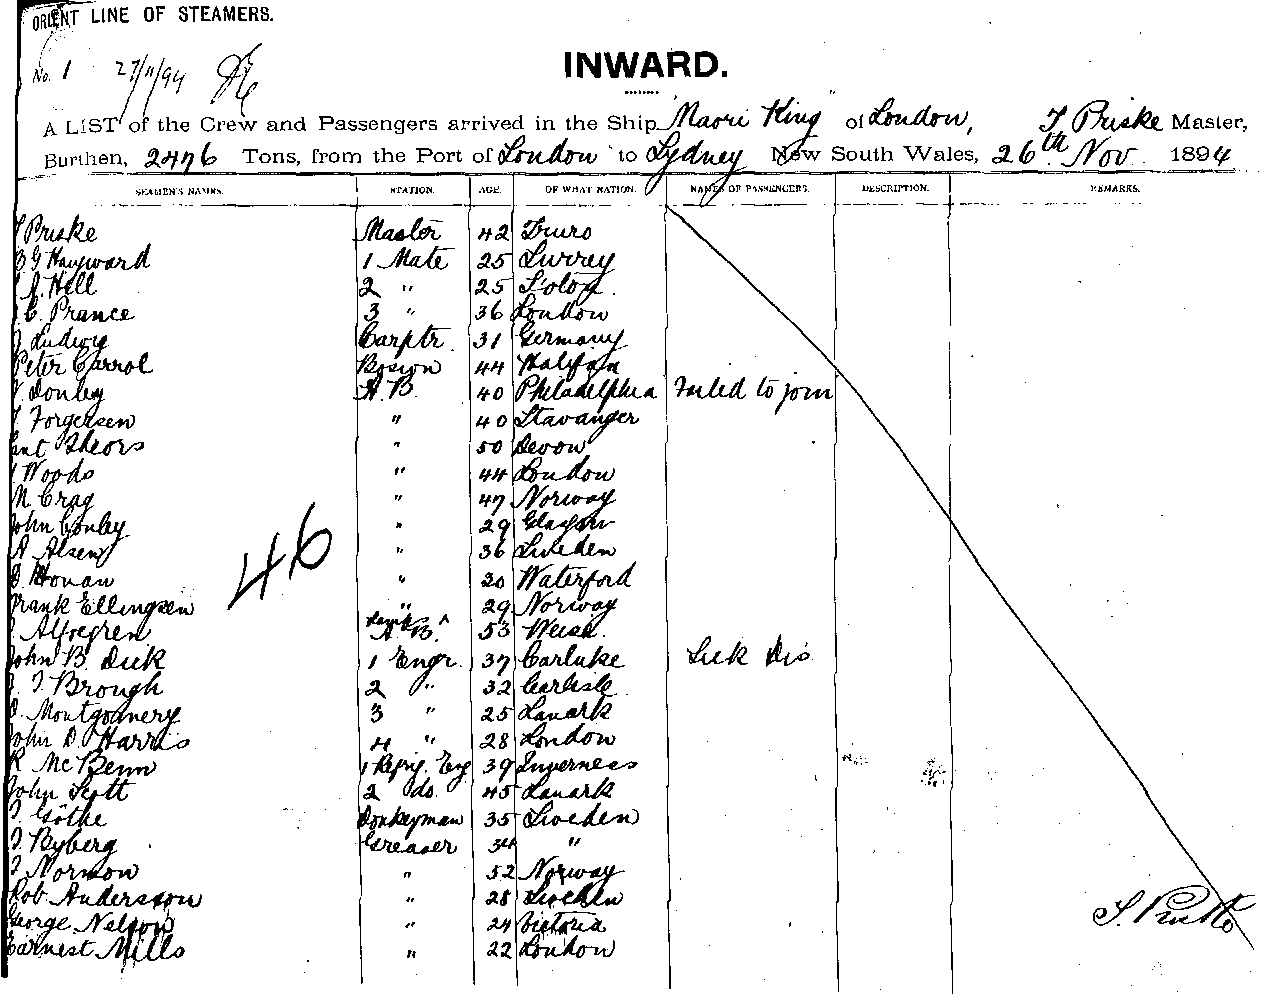 ORIENT LINE OF STEAMERS.
No. 1 27/11/94
INWARD.
A LIST of the Crew and Passengers arrived in the Ship "Maori King" of London, T Priske Master,
Burthen, 2476 Tons, from the Port of London to Sydney New South Wales, 26th Nov. 1894
SEAMEN'S NAMES. STATION. AGE. OF WHAT NATION. NAMES OF PASSENGERS. DESCRIPTION. REMARKS.
T Priske Master 42 Truro
G Hayward 1 Mate 25 Surrey
Hill 2 " 25 S'oton
C. Prance 3 " 36 London
Ludwig Carptr. 31 Germany
Peter Carrol Bosion 44 Halifax
Donley A.B. 40 Philadelphia Failed to join
Torgersen " 40 Stavanger
" 50 Devon
Woods " 44 London
M. Crag " 47 Norway
John Conley " 29 Glasgow
A Alsen " 36 Sweden
Honan " 30 Waterford
Frank Ellingsen " 29 Norway
Alfregren A.B. 53
John B. Dick 1 Engr. 37 Carluke Sick Dis
T Brough 2 " 32 Carlisle
Montgomery 3 " 25 Lanark
John D. Harris 4 " 28 London
R McBenn 1 Refrig. Eng 39 Inverness
John Scott 2 do. 45 Lanark
Göthe Donkeyman 35 Sweden
Ryberg Greaser 34 "
Normon " 52 Norway
Rob Andersson " 28
George Nelson " 24 Victoria
Earnest Mills " 22 London
46
T. Priske